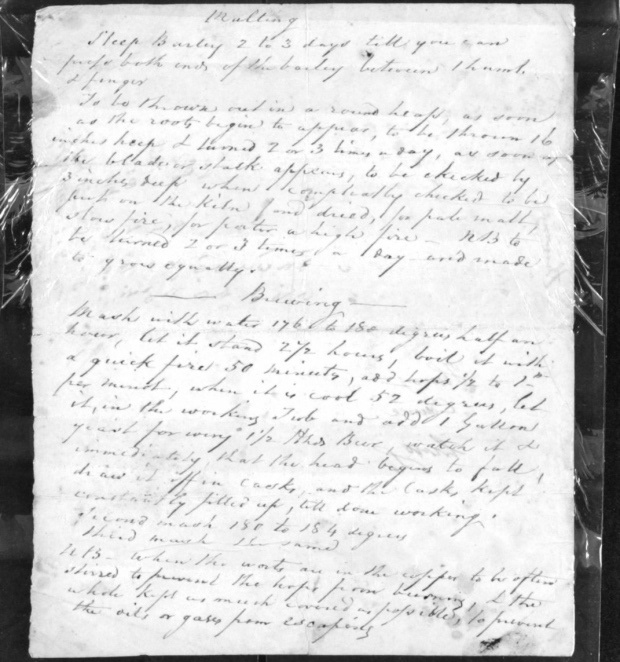 Malting
Steep Barley 2 to 3 days till you can
press both ends of the barley between thumb
& finger
To be thrown out in a round heap, as soon
as the roots begin to appear, to be thrown 16
inches deep & turned 2 or 3 times a day, as soon as
the blade or stalk appears, to be checked by
3 inches deep when compleatly checked to be
put on the kiln and dried, for pale malt,
slow fire, for porter a high fire — NB to
be turned 2 or 3 times a day and made
to grow equally.
Brewing
Mash with water 176 to 180 degrees half an
hour, let it stand 2 1/2 hours, boil it with
a quick fire 50 minuets, add hops 1/2 to 1 lb
per minut, when it is cool 52 degrees, let
it, in the working Tub and add 1 Gallon
yeast for every 1 1/2 Hhds Beer, watch it &
immediately that the head begins to fall,
draw it off in Casks, and the Casks kept
constantly filled up, till done working.
Second mash 180 to 184 degrees
Third mash the same
NB — When the worts are in the copper to be often
stirred to prevent the hops from burning, & the
whole kept as much covered as possible, to prevent
the oils or gases from escaping